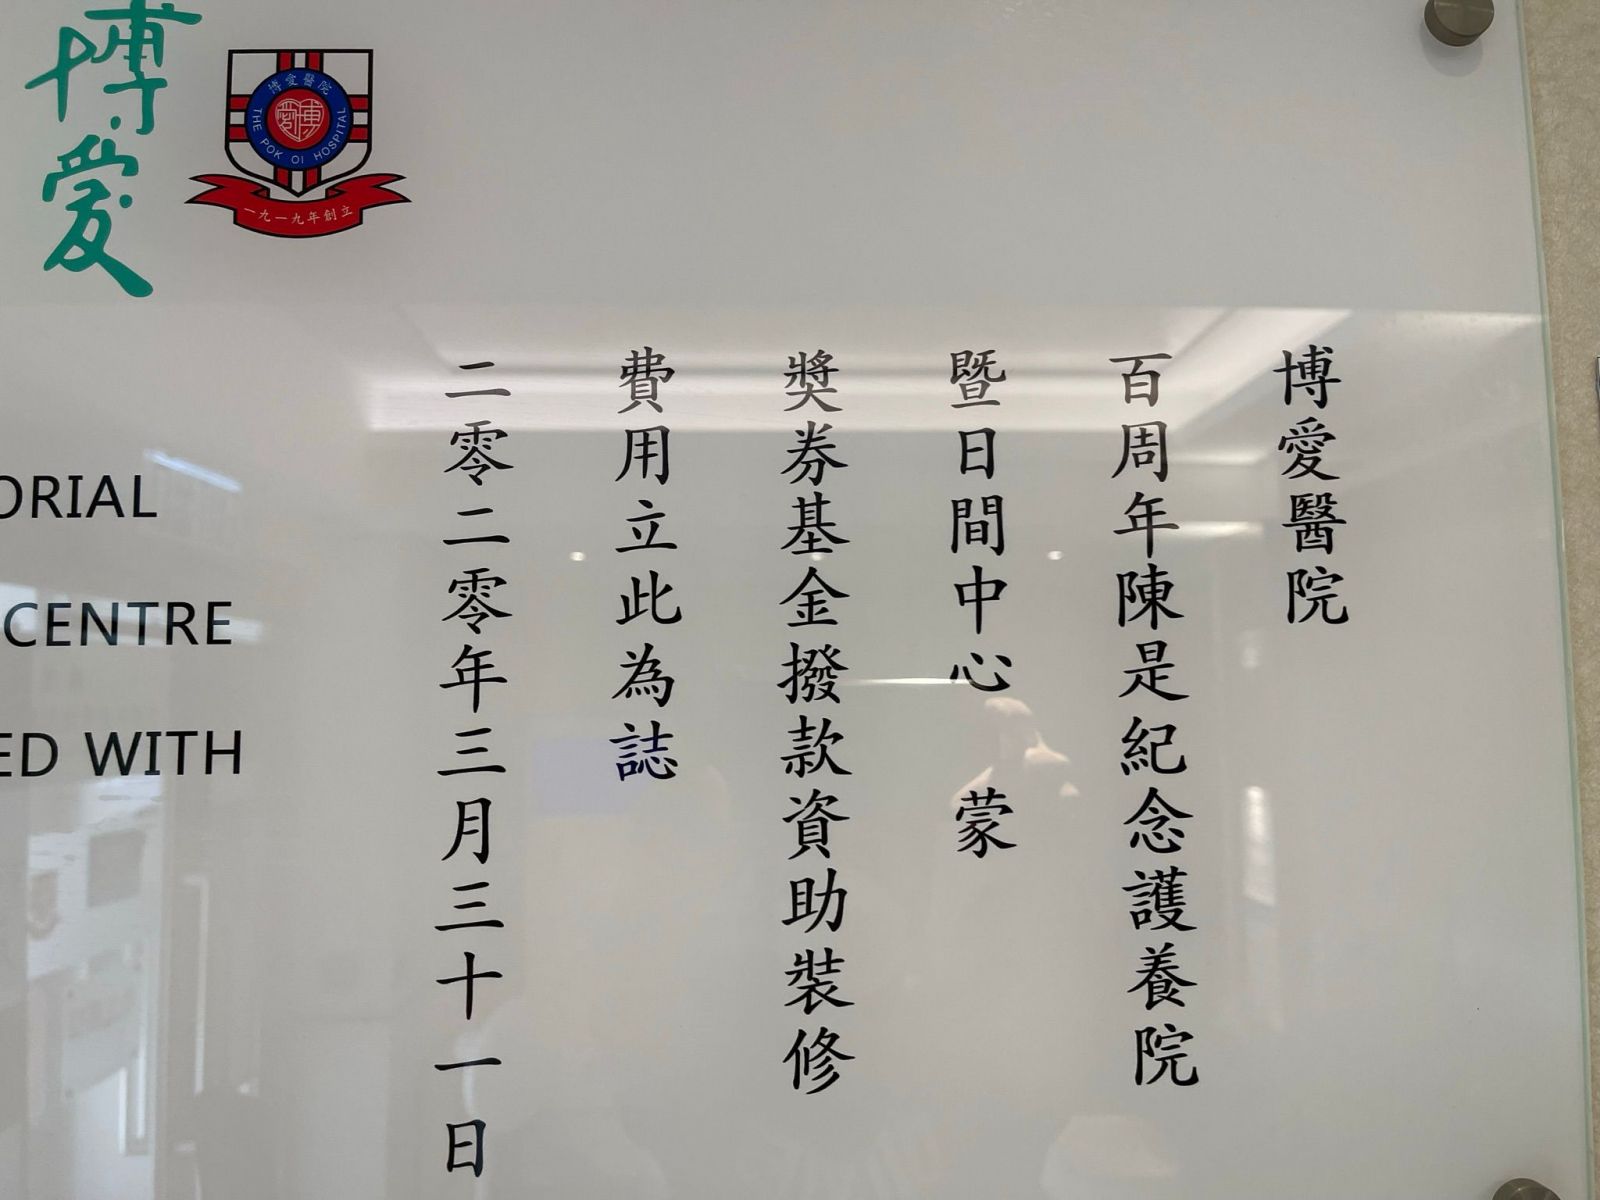 博愛
博愛醫院
THE POK OI HOSPITAL
博愛
一九一九年創立
博愛醫院
百周年陳是紀念護養院
暨日間中心 蒙
奬券基金撥款資助裝修
費用立此為誌
二零二零年三月三十一日
ORIAL
CENTRE
ED WITH